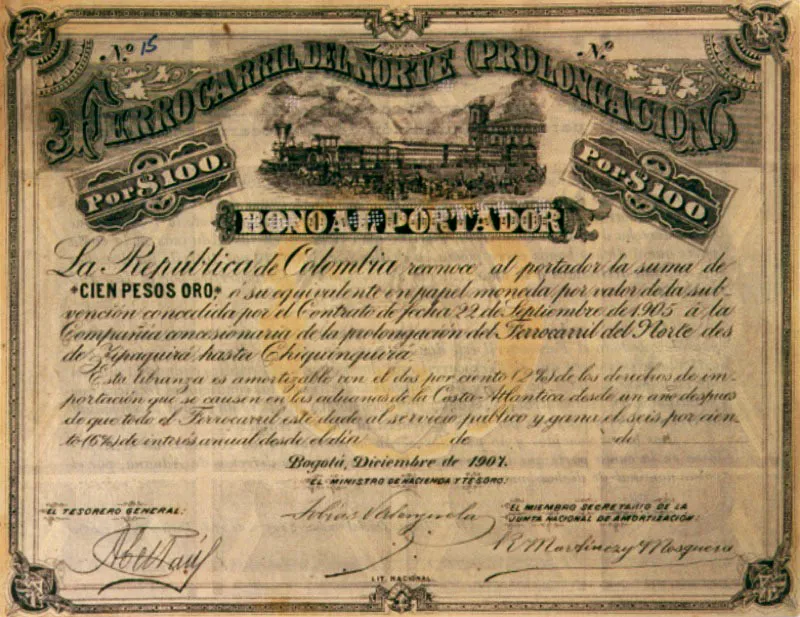 Nº 15
Nº
FERROCARRIL DEL NORTE (PROLONGACION)
Por $100.
Por $100.
BONO AL PORTADOR
La República de Colombia reconoce al portador la suma de
*CIEN PESOS ORO* ó su equivalente en papel moneda por valor de la sub-
vención concedida por el Contrato de fecha 22 de Septiembre de 1905 á la
Compañía concesionaria de la prolongación del Ferrocarril del Norte des
de Zipaquirá hasta Chiquinquirá.
Esta libranza es amortizable con el dos por ciento (2%) de los derechos de im-
portación que se causen en las aduanas de la Costa Atlántica desde un año después
de que todo el Ferrocarril esté dado al servicio público y gana el seis por cien-
to (6%) de interés anual desde el día de de
Bogotá, Diciembre de 1907.
EL MINISTRO DE HACIENDA Y TESORO:
EL TESORERO GENERAL:
EL MIEMBRO SECRETARIO DE LA
JUNTA NACIONAL DE AMORTIZACIÓN:
Tobías Valenzuela
R. Martínez y Mosquera
LIT. NACIONAL